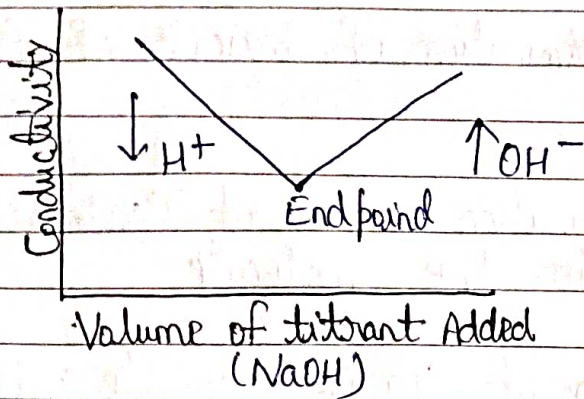 Conductivity
↓ H+
↑ OH-
Endpaind
Volume of titrant Added
(NaOH)